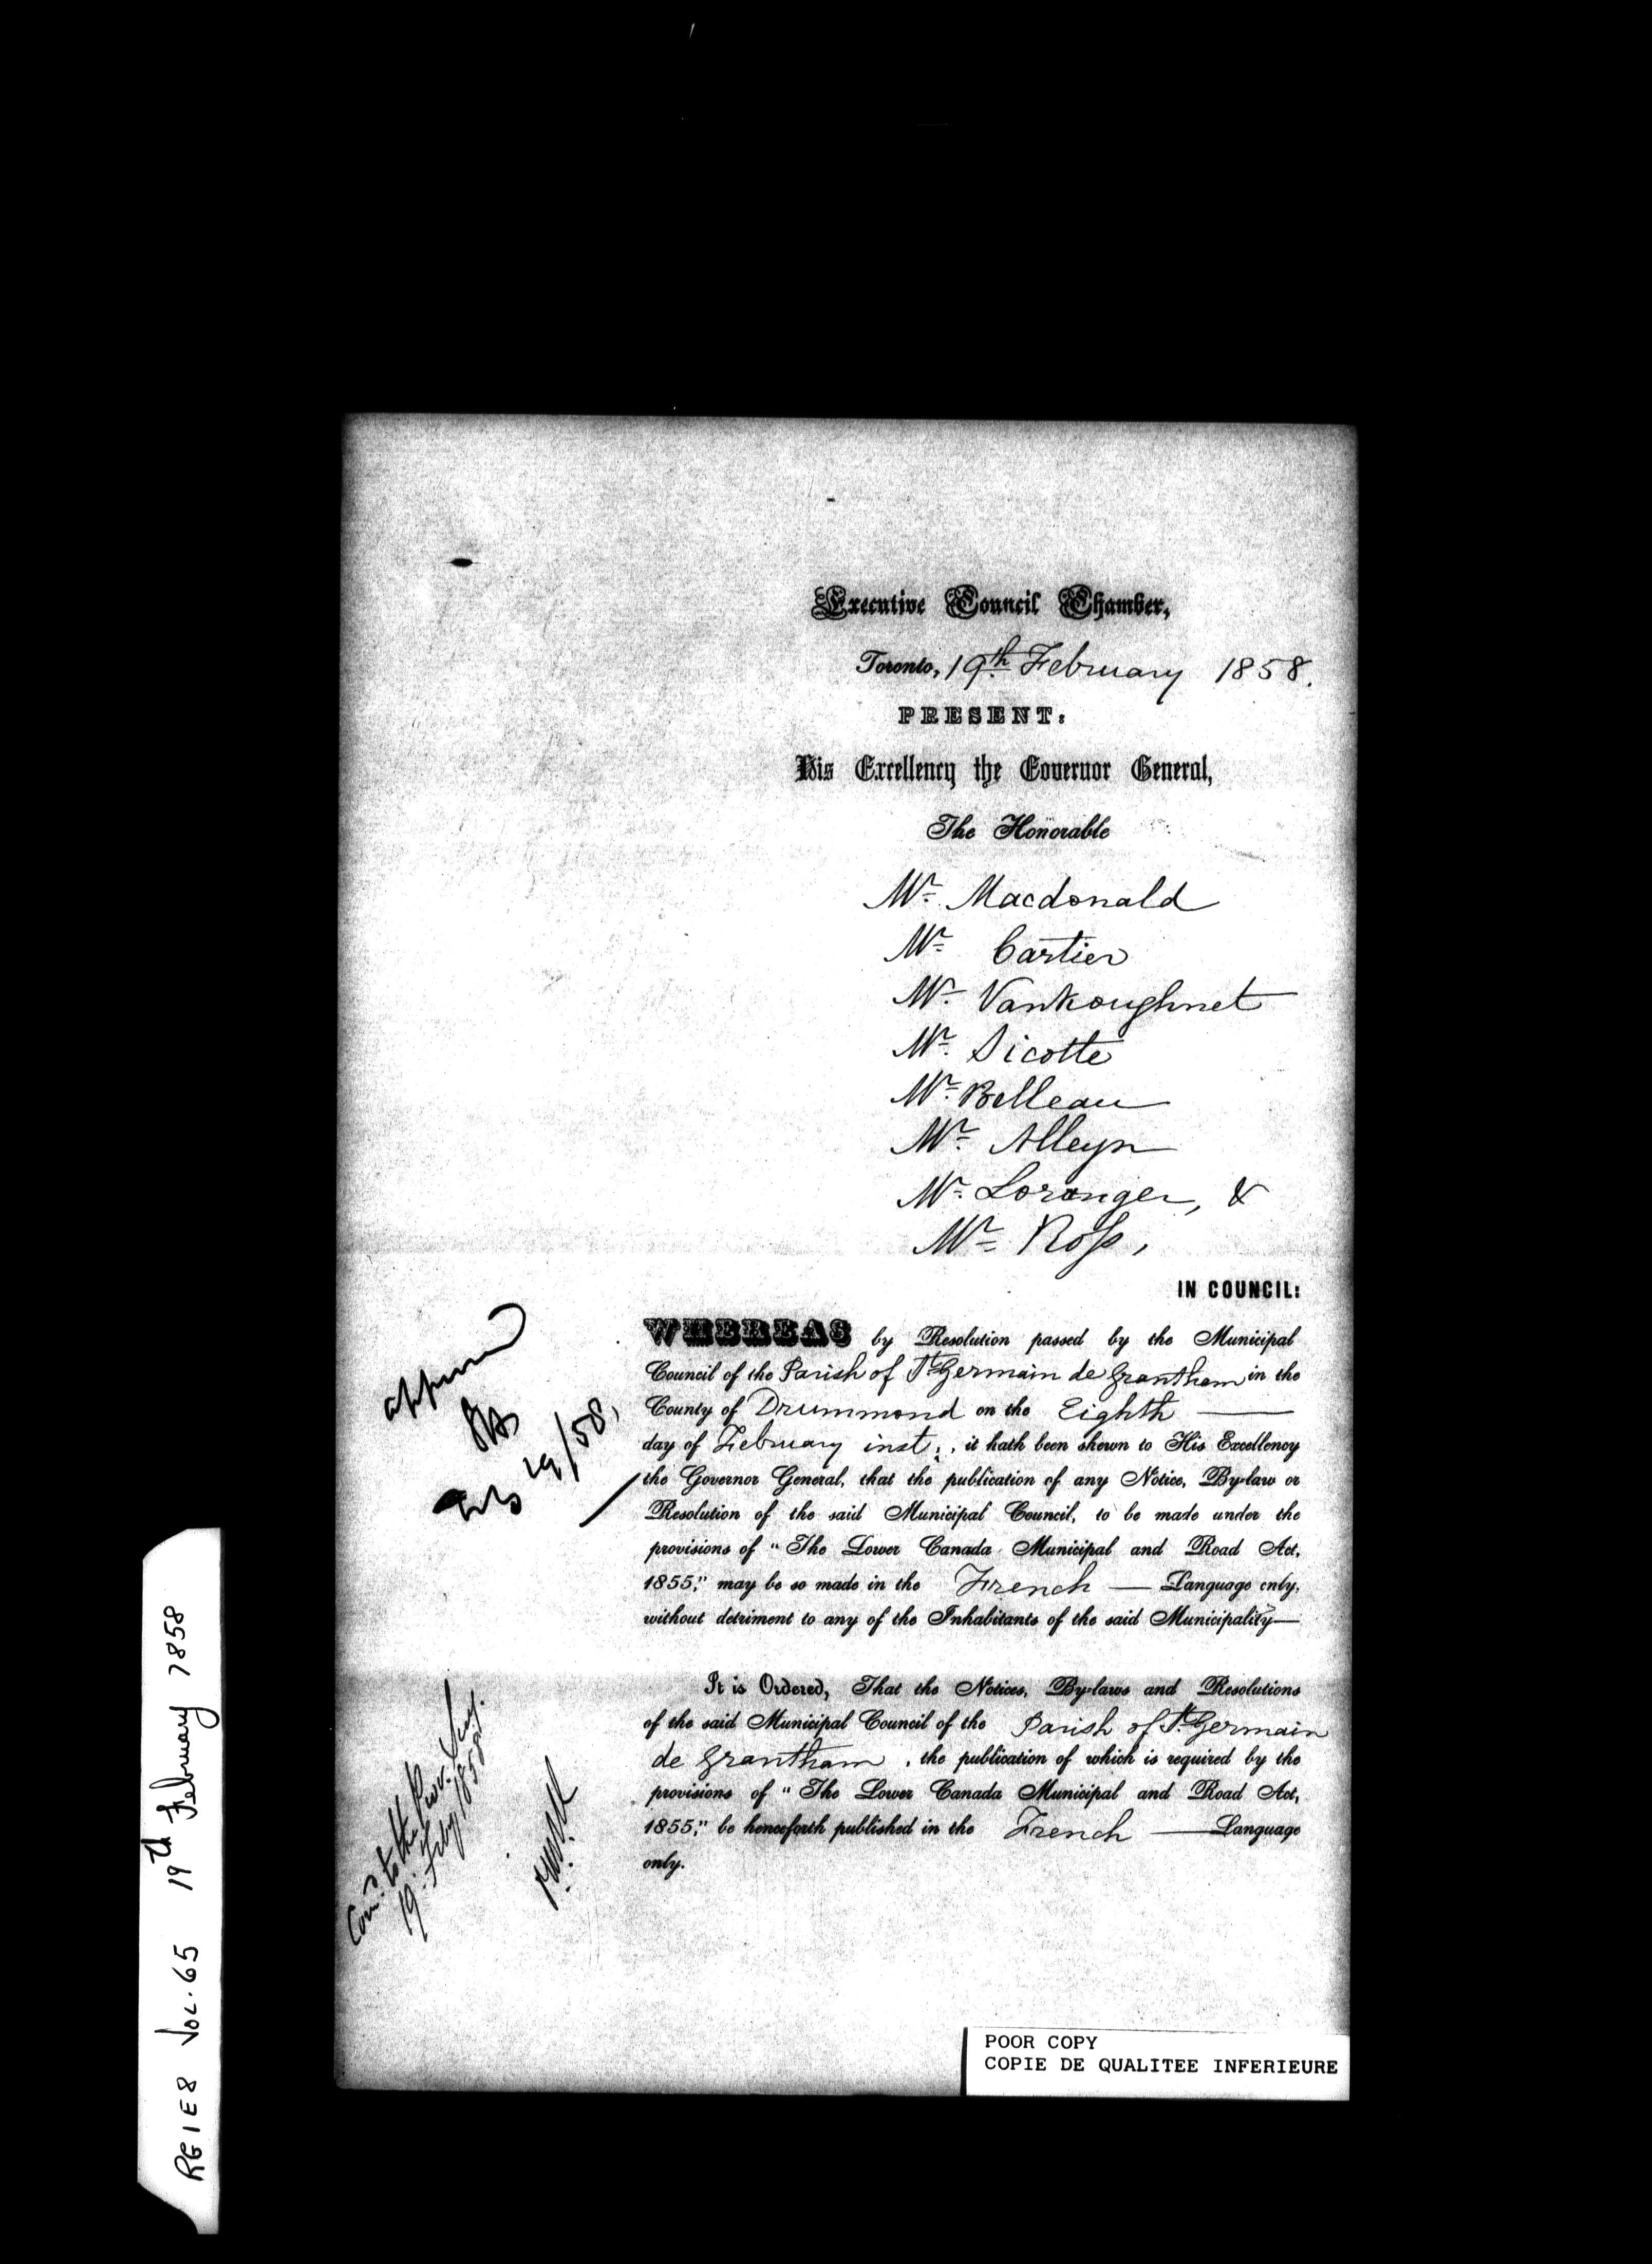 Executive Council Chamber,
Toronto, 19th February 1858.
PRESENT:
His Excellency the Governor General,
The Honorable
Mr. Macdonald
Mr. Cartier
Mr. Vankoughnet
Mr. Sicotte
Mr. Belleau
Mr. Alleyn
Mr. Loranger, &
Mr. Ross,
IN COUNCIL:
WHEREAS by Resolution passed by the Municipal
Council of the Parish of St. Germain de Grantham in the
County of Drummond on the Eighth —
day of February inst:, it hath been shewn to His Excellency
the Governor General, that the publication of any Notice, By-law or
Resolution of the said Municipal Council, to be made under the
provisions of "The Lower Canada Municipal and Road Act,
1855," may be so made in the French — Language only,
without detriment to any of the Inhabitants of the said Municipality—
It is Ordered, That the Notices, By-laws and Resolutions
of the said Municipal Council of the Parish of St. Germain
de Grantham, the publication of which is required by the
provisions of "The Lower Canada Municipal and Road Act,
1855," be henceforth published in the French — Language
only.
approved
19/58,
to the Prov. Secy.
19. Feby 1858.
RG1E8 VOL. 65 19th February 1858
POOR COPY
COPIE DE QUALITEE INFERIEURE